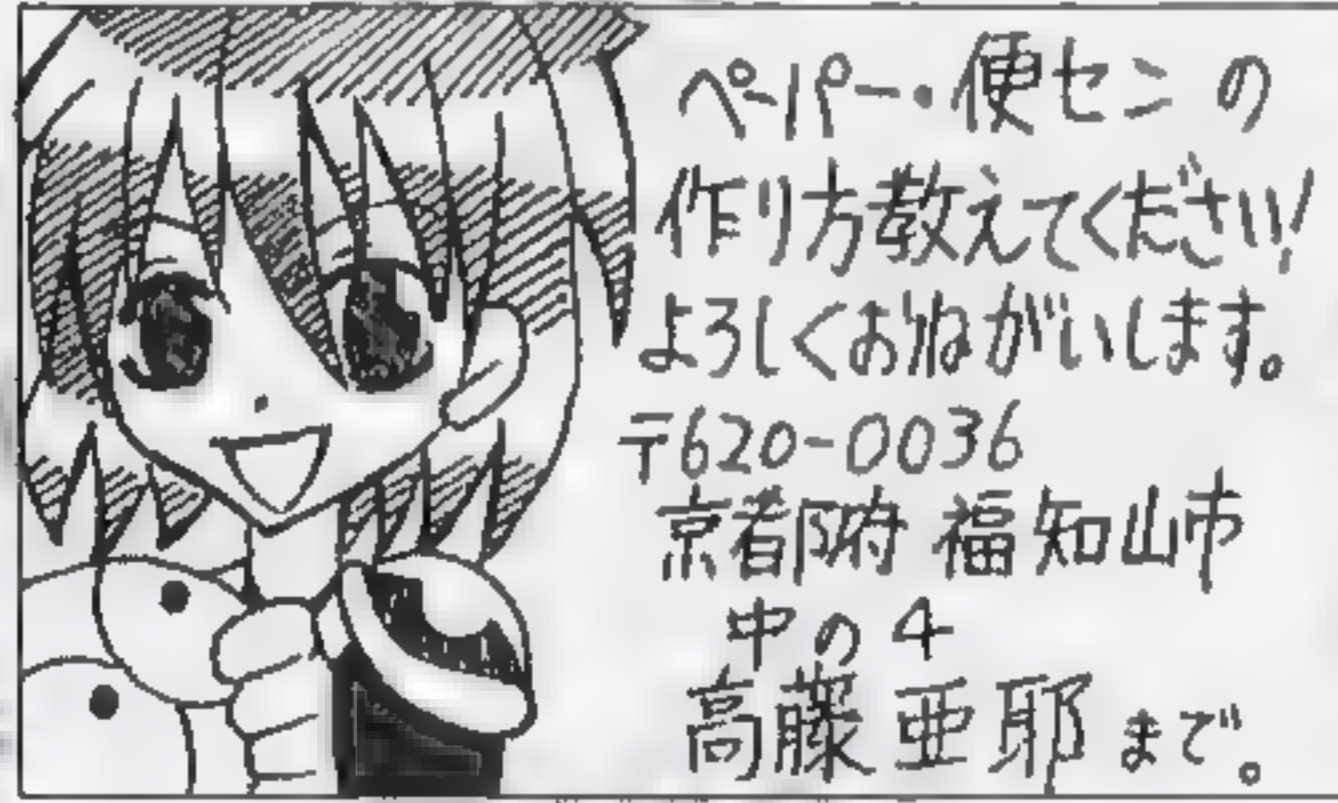 ペーパー・便センの
作り方教えてください!
よろしくおねがいします。
〒620-0036
京都府福知山市
中の4
高藤亜耶まで。